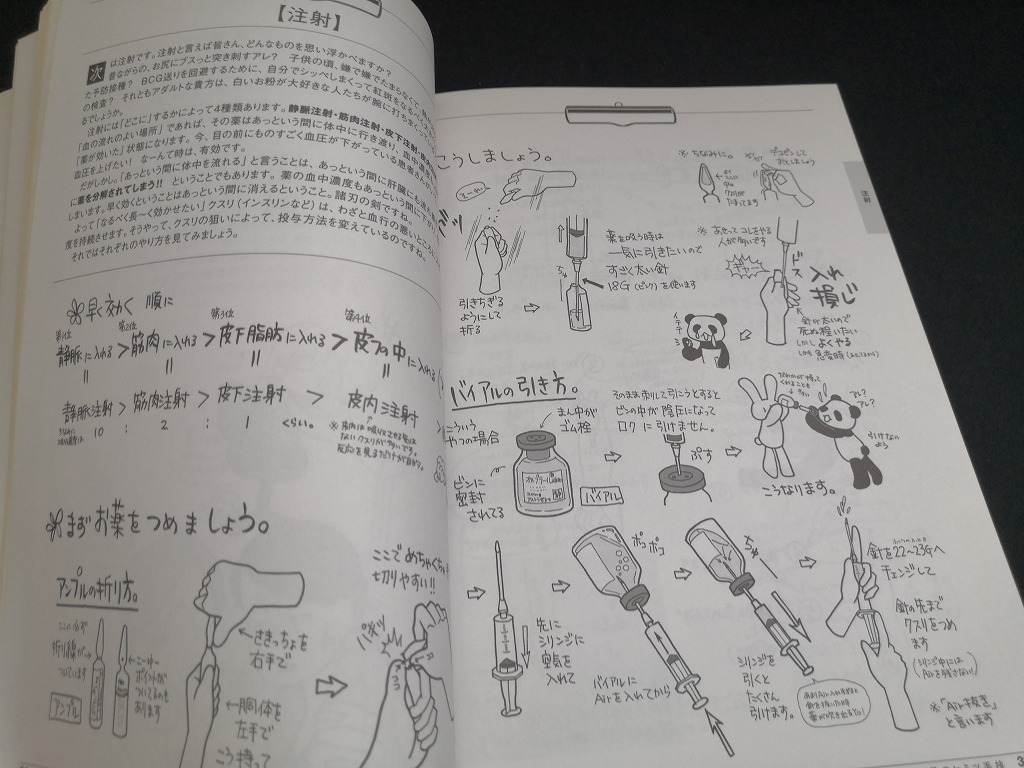 【注射】
次は注射です。注射と言えば皆さん、どんなものを思い浮かべますか?
昔ながらの、お尻にブスっと突き刺すアレ? 子供の頃、嫌で嫌でたまらなくて、
た予防接種? BCG送りを回避するために、自分でシッペしまくって紅斑をなるべく
の検査? それともアダルトな貴方は、白いお粉が大好きな人たちが腕に打ちまく
るでしょうか。
注射には「どこに」するかによって4種類あります。静脈注射・筋肉注射・皮下注射・
「血の流れのよい場所」であれば、その薬はあっという間に体中に行き渡り、血中濃度
「薬が効いた」状態になります。今、目の前にものすごく血圧が下がっている患者さんが
血圧を上げたい! なーんて時は、有効です。
だがしかし。「あっという間に体中を流れる」と言うことは、あっという間に肝臓にも
に薬を分解されてしまう!! ということでもあります。薬の血中濃度もあっという間に下が
しまいます。早く効くということはあっという間に消えるということ。諸刃の剣ですね。
よって「なるべく長〜く効かせたい」クスリ(インスリンなど)は、わざと血行の悪いところ
度を持続させます。そうやって、クスリの狙いによって、投与方法を変えているのですね。
それではそれぞれのやり方を見てみましょう。
早く効く 順に
第1位
第2位
第3位
第4位
静脈に入れる > 筋肉に入れる > 皮下脂肪に入れる > 皮フの中に入れる
静脈注射 > 筋肉注射 > 皮下注射 > 皮内注射
10 : 2 : 1 くらい。
まずお薬をつめましょう。
アンプルの折り方。
アンプル
さきっちょを
右手で
胴体を
左手で
こう持って
ここでめちゃくちゃ
切りやすい!!
こうしましょう。
※ちなみに。
デコピンして
おとしましょう
引きちぎる
ようにして
折る
薬を吸う時は
一気に引きたいので
すごく太い針
18G(ピンク)を使います
※あせってコレをやる
人が多いです
ドス
入れ
損じ
針が太いので
死ぬ程いたい
しかしよくやる
しかも急変時
注射
バイアルの引き方。
こういう
やつの場合
まん中が
ゴム栓
ビンに
密封
されてる
バイアル
そのまま刺して引こうとすると
ビンの中が陰圧になって
ロクに引けません。
ぷす
引けない
よう
こうなります。
先に
シリンジに
空気を
入れて
ポコ
ポコ
バイアルに
Airを入れてから
シリンジを
引くと
たくさん
引けます。
針を22〜23Gへ
チェンジして
針の先まで
クスリをつめ
ます
(シリンジ中には
Airを残さない)
※「Air抜き」
と言います